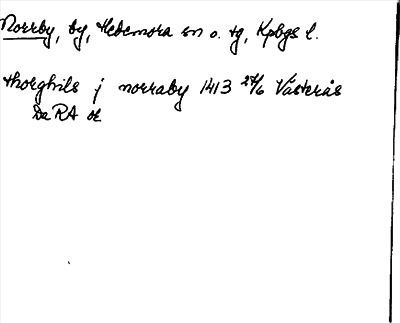 Norrby, by, Hedemora sn o. tg, Kpbgs l.
thorghils j norraby 1413 24/6 Västerås
DaRA or